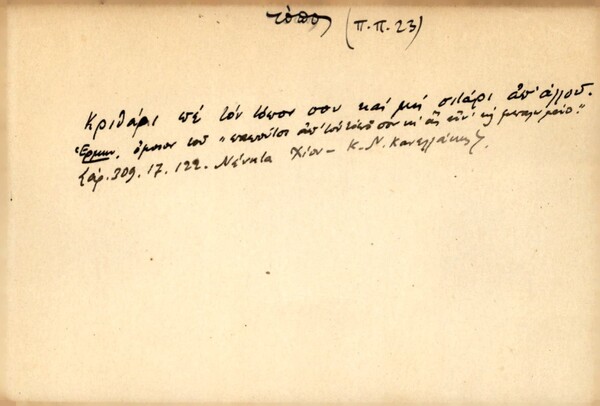 τόπος (Π.Π. 23)
Κριθάρι πέ τόν τόπον σου καί μή σιτάρι ἀπ' ἀλλοῦ.
Ἑρμην. ὅμοιον τοῦ "παπούτσι ἀπ' τόν τόπο σου κι' ἄς εἶν' κή μπαλωμένο."
Λάρ. 309. 17. 122. Νένητα Χίου – Κ. Ν. Κανελλάκης.